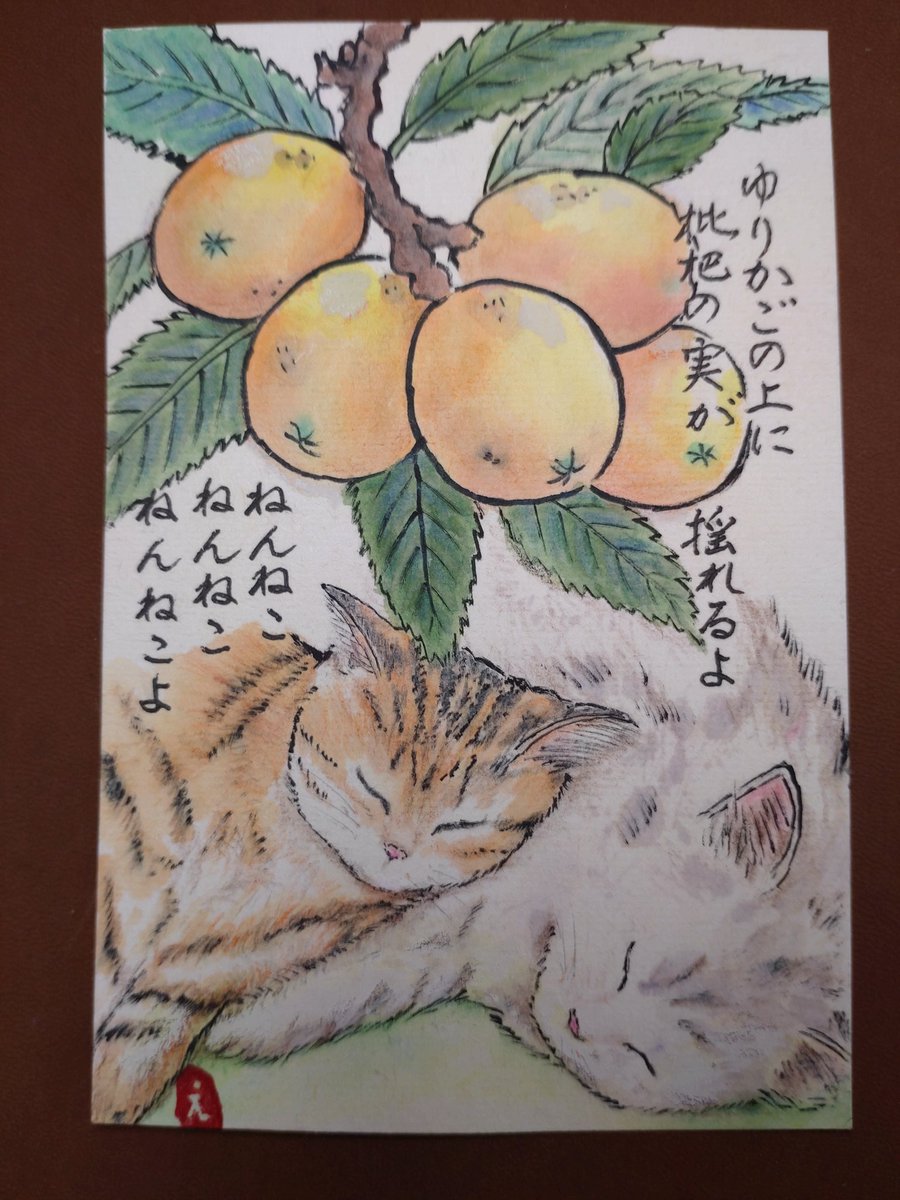 ゆりかごの上に
枇杷の実が 揺れるよ
ねんねこ
ねんねこ
ねんねこよ
え